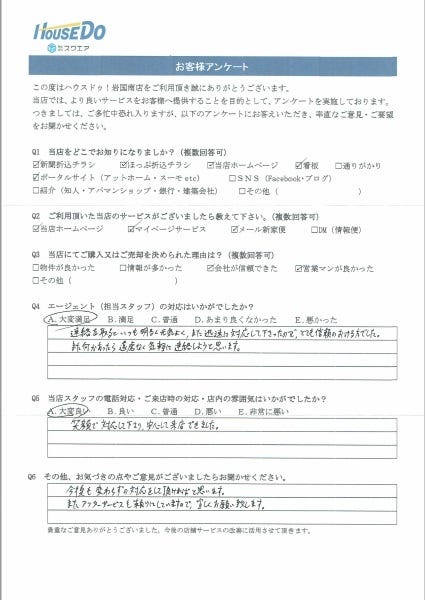 HOUSEDO
株式会社 スクエア
お客様アンケート
この度はハウスドゥ！岩国南店をご利用頂き誠にありがとうございます。
当店では、より良いサービスをお客様へ提供することを目的として、アンケートを実施しております。
つきましては、ご多忙中恐れ入りますが、以下のアンケートにお答えいただき、率直なご意見・ご要望
をお聞かせください。
Q1 当店をどこでお知りになりましたか？（複数回答可）
☑新聞折込チラシ ☑ほっぷ折込チラシ ☑当店ホームページ ☑看板 □通りがかり
☑ポータルサイト（アットホーム・スーモetc） □ＳＮＳ（Facebook・ブログ）
□紹介（知人・アパマンショップ・銀行・建築会社） □その他（ ）
Q2 ご利用頂いた当店のサービスがございましたら教えて下さい。（複数回答可）
☑当店ホームページ ☑マイページサービス ☑メール新家便 □DM（情報便）
Q3 当店にてご購入又はご売却を決められた理由は？（複数回答可）
□物件が良かった □情報が多かった ☑会社が信頼できた ☑営業マンが良かった
□その他（ ）
Q4 エージェント（担当スタッフ）の対応はいかがでしたか？
A．大変満足 B．満足 C．普通 D．あまり良くなかった E．悪かった
連絡を取るといつも明るく気さくに、また迅速に対応して下さったので、とても信頼のおける方でした。
また何かあったら遠慮なく気軽に連絡しようと思います。
Q5 当店スタッフの電話対応・ご来店時の対応・店内の雰囲気はいかがでしたか？
A．大変良い B．良い C．普通 D．悪い E．非常に悪い
笑顔で対応して下さり、安心して来店できました。
Q6 その他、お気づきの点やご意見がございましたらお聞かせください。
今後も変わらずの対応をして頂ければと思います。
またアフターサービスも頼りにしていますので、宜しくお願い致します。
貴重なご意見ありがとうございました。今後の店舗サービスの改善に活用させて頂きます。